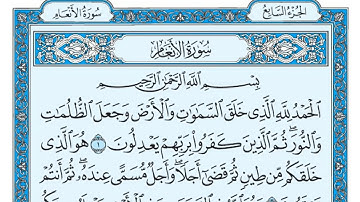 سُورَةُ الأَنْعَامِ
الجُزْءُ السَّابِعُ
سُورَةُ الأَنْعَامِ
بِسْمِ ٱللَّهِ ٱلرَّحْمَٰنِ ٱلرَّحِيمِ
ٱلْحَمْدُ لِلَّهِ ٱلَّذِى خَلَقَ ٱلسَّمَٰوَٰتِ وَٱلْأَرْضَ وَجَعَلَ ٱلظُّلُمَٰتِ
وَٱلنُّورَ ۖ ثُمَّ ٱلَّذِينَ كَفَرُوا۟ بِرَبِّهِمْ يَعْدِلُونَ ١ هُوَ ٱلَّذِى
خَلَقَكُم مِّن طِينٍ ثُمَّ قَضَىٰٓ أَجَلًا ۖ وَأَجَلٌ مُّسَمًّى عِندَهُۥ ۖ ثُمَّ أَنتُمْ